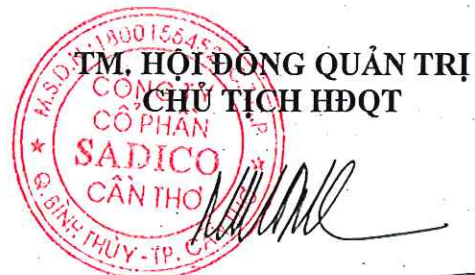 TM. HỘI ĐỒNG QUẢN TRỊ
CHỦ TỊCH HĐQT
CÔNG TY
CỔ PHẦN
SADICO
CẦN THƠ
Q. BÌNH THỦY - TP.